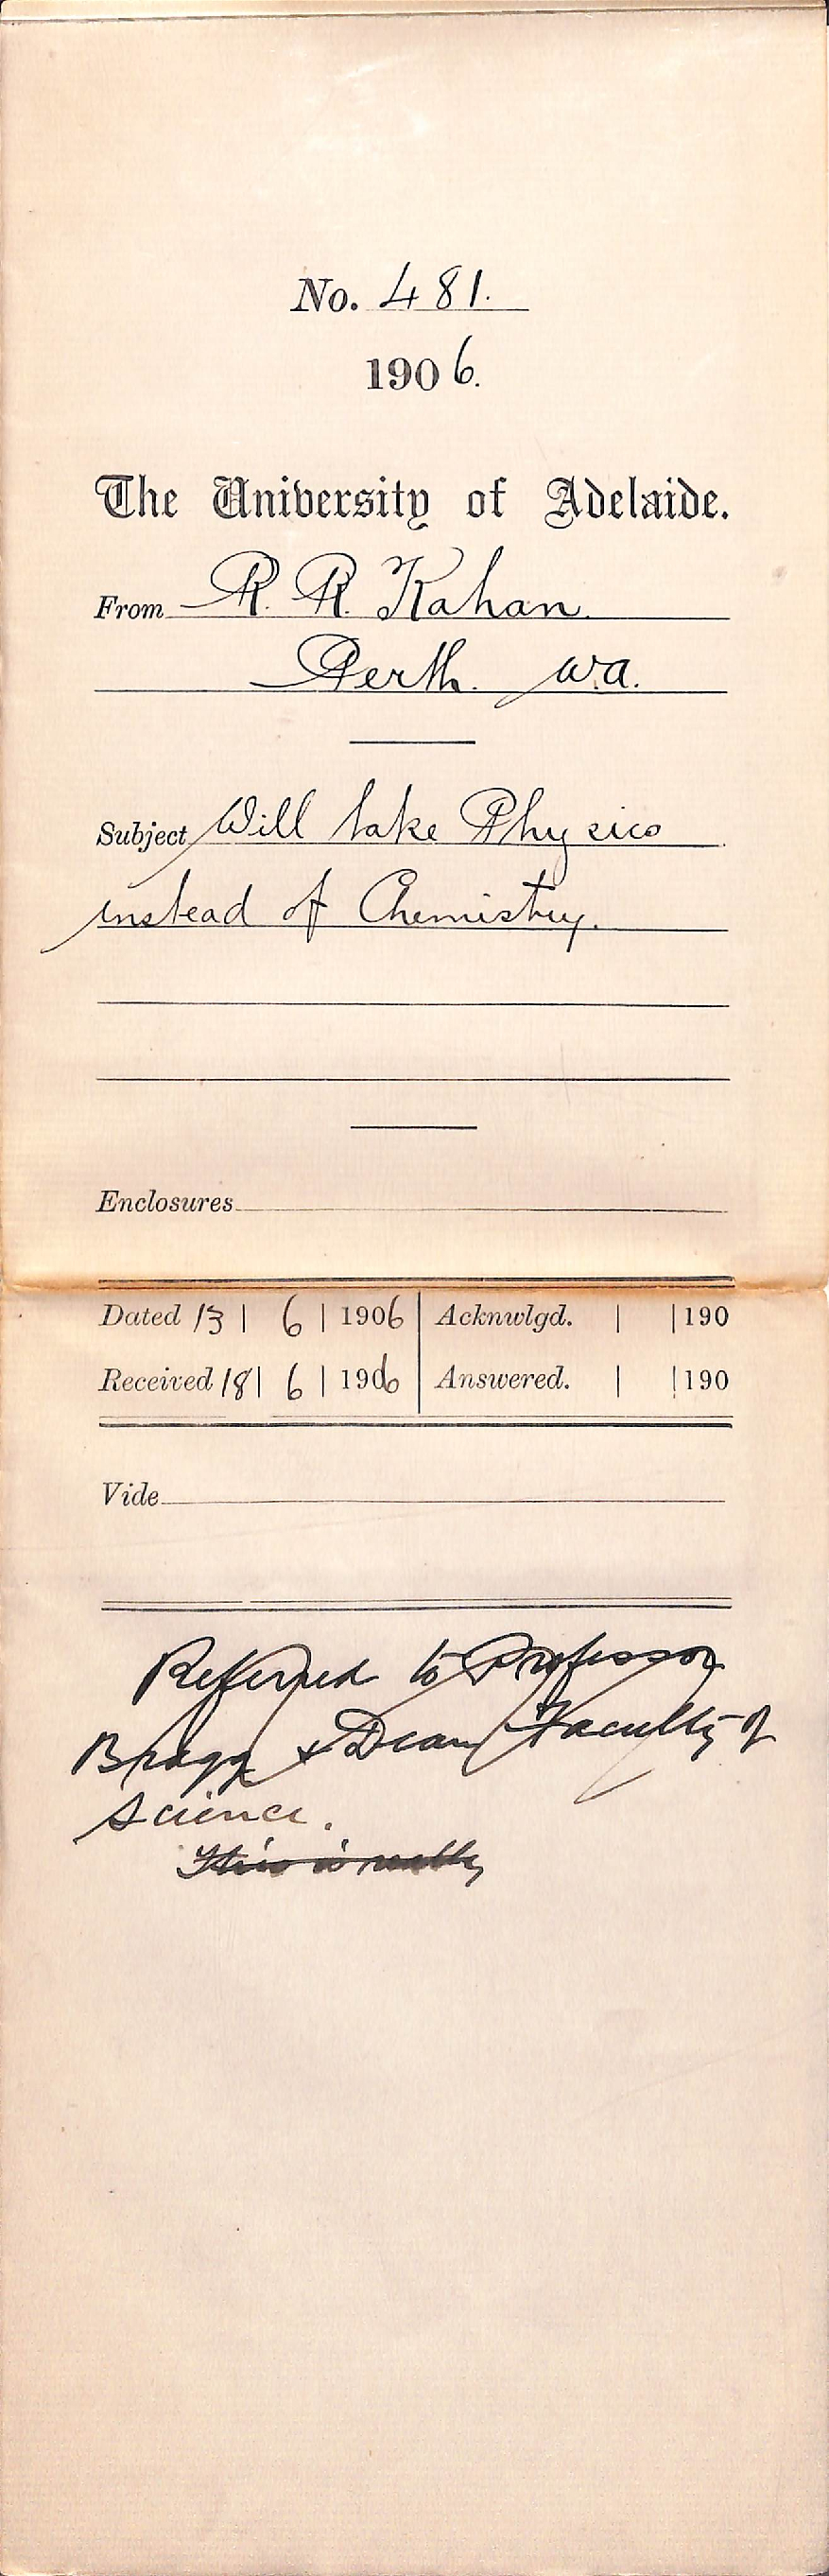 No. 481.
1906.
The University of Adelaide.
From R. R. Kahan.
Perth. W.A.
Subject Will take Physics
instead of Chemistry.
Enclosures
Dated 13 | 6 | 1906 | Acknwlgd. | | 190
Received 18 | 6 | 1906 | Answered. | | 190
Vide
Referred to Professor
Bragg & Dean Faculty of
Science.
This is really